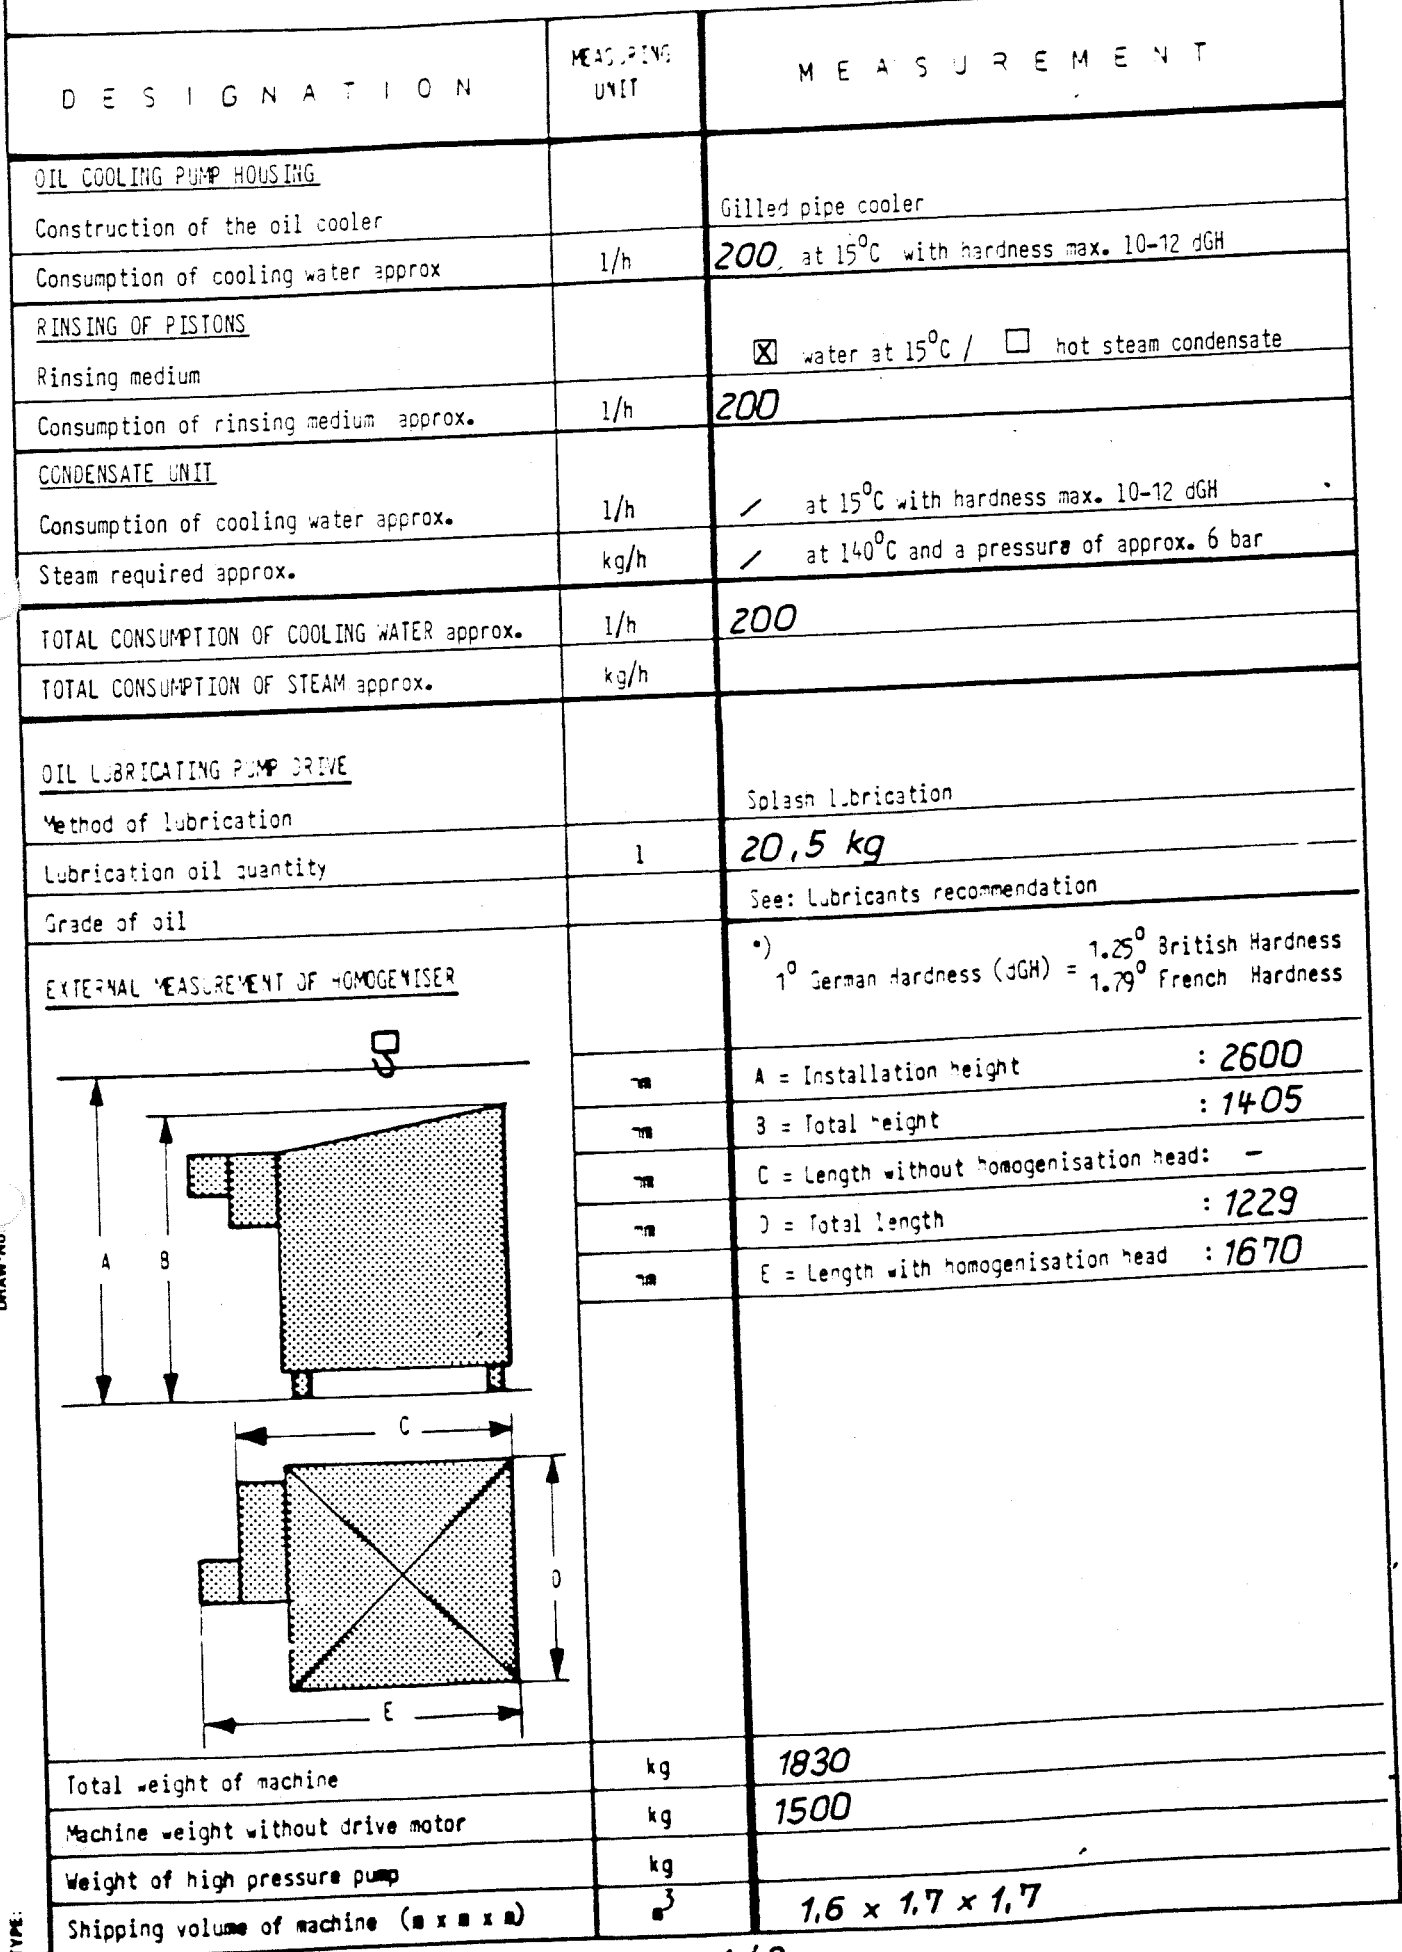 DESIGNATION MEASURING UNIT MEASUREMENT
OIL COOLING PUMP HOUSING
Construction of the oil cooler Gilled pipe cooler
Consumption of cooling water approx l/h 200 at 15°C with hardness max. 10-12 dGH
RINSING OF PISTONS
Rinsing medium ☒ water at 15°C / ☐ hot steam condensate
Consumption of rinsing medium approx. l/h 200
CONDENSATE UNIT
Consumption of cooling water approx. l/h / at 15°C with hardness max. 10-12 dGH
Steam required approx. kg/h / at 140°C and a pressure of approx. 6 bar
TOTAL CONSUMPTION OF COOLING WATER approx. l/h 200
TOTAL CONSUMPTION OF STEAM approx. kg/h
OIL LUBRICATING PUMP DRIVE
Method of lubrication Splash lubrication
Lubrication oil quantity l 20,5 kg
Grade of oil See: Lubricants recommendation
EXTERNAL MEASUREMENT OF HOMOGENISER
•)
1° German Hardness (dGH) = 1.25° British Hardness
1.79° French Hardness
mm A = Installation height : 2600
mm B = Total height : 1405
mm C = Length without homogenisation head: –
mm D = Total length : 1229
mm E = Length with homogenisation head : 1670
A B
C
D
E
Total weight of machine kg 1830
Machine weight without drive motor kg 1500
Weight of high pressure pump kg
Shipping volume of machine (m x m x m) m³ 1,6 x 1,7 x 1,7
DRAW-NO.
TYPE: